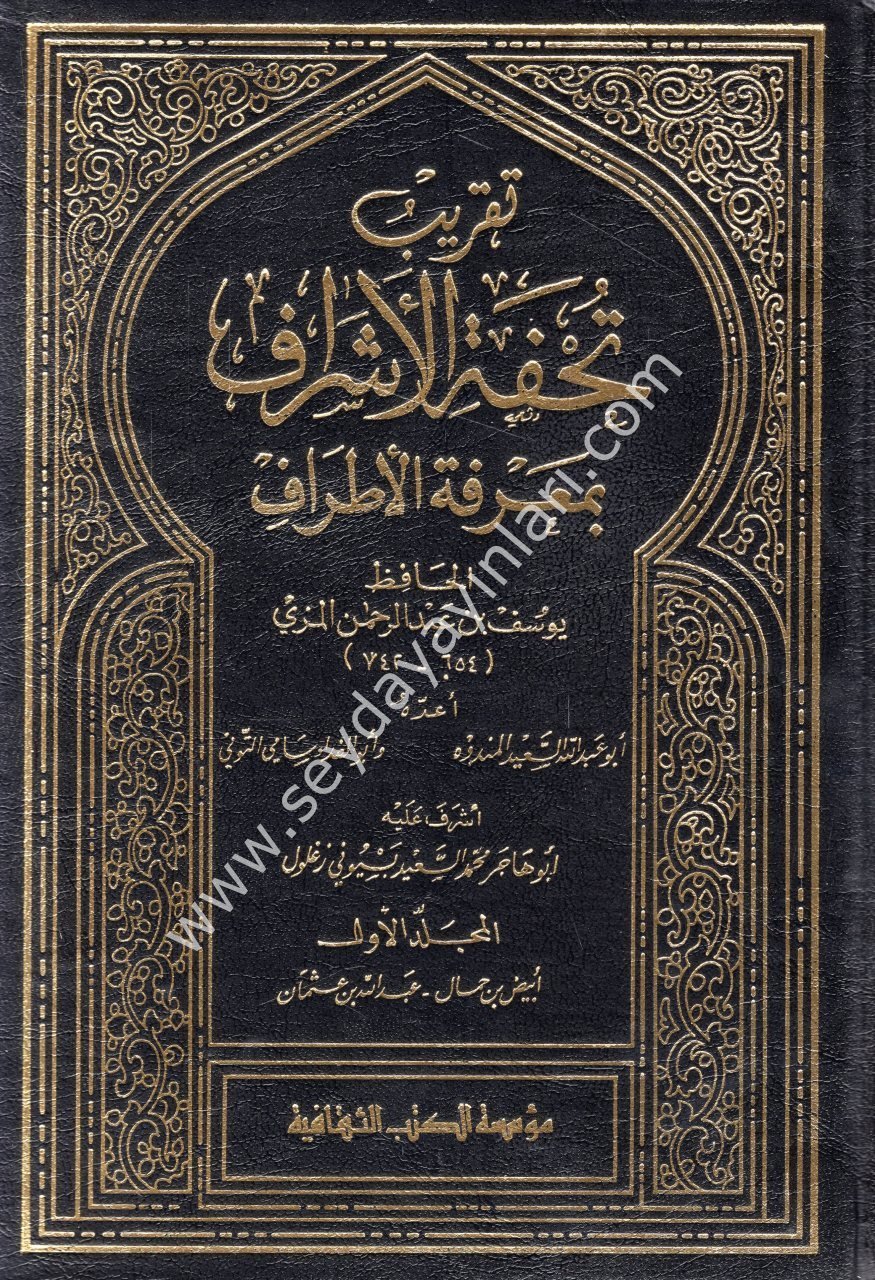 تقريب
تحفة الأشراف
بمعرفة الأطراف
الحافظ
يوسف بن عبد الرحمن المزي
(٦٥٤ - ٧٤٢)
أعدّه
أبو عبد الله السعيد المندوه وأبو الفداء سامي التوني
أشرف عليه
أبو هاجر محمد السعيد بسيوني زغلول
المجلد الأول
أبيض بن حمال - عبد الله بن عثمان
مؤسسة الكتب الثقافية
www.seydayayinlari.com